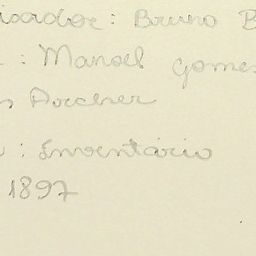 isador: Bruno B
: Manoel Gomes
s Archer
: Inventário
1897